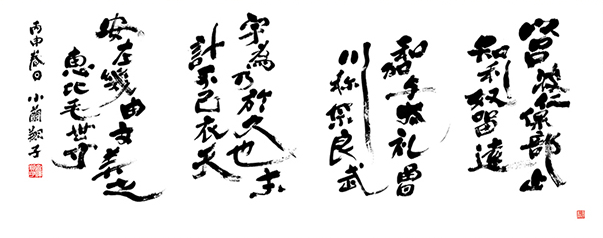 以呂波仁保部止
知利奴留遠
和加与太礼曽
川祢奈良武
宇為乃於久也末
計不己衣天
安左幾由女美之
恵比毛世寸
丙申春日 小蘭